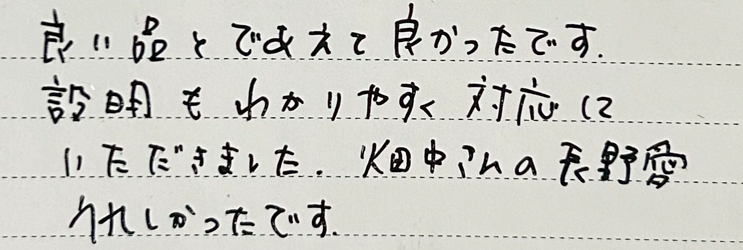 良い品とであえて良かったです.
説明もわかりやすく対応に
いただきました. 畑中さんの長野愛
うれしかったです.